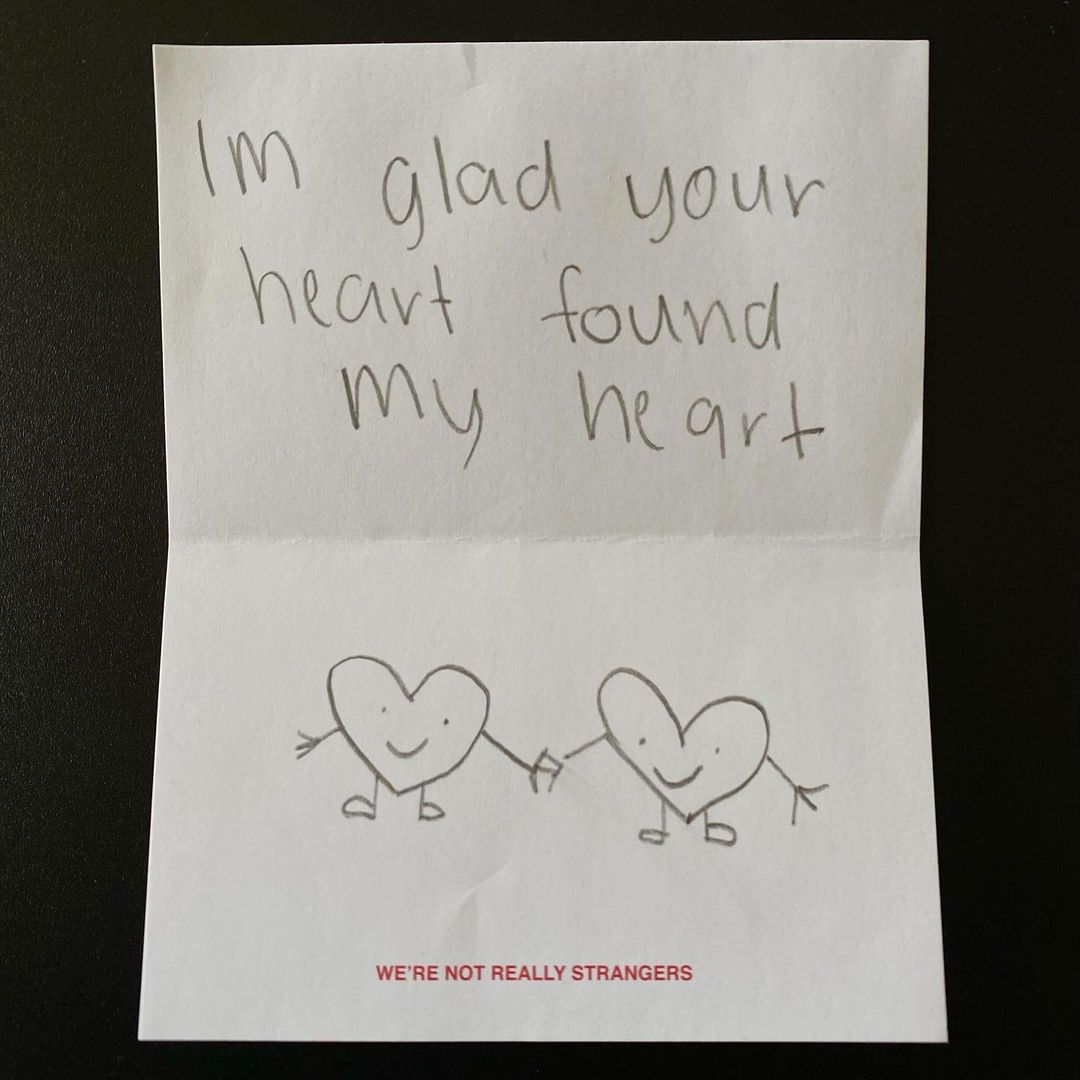 Im glad your
heart found
my heart
WE'RE NOT REALLY STRANGERS